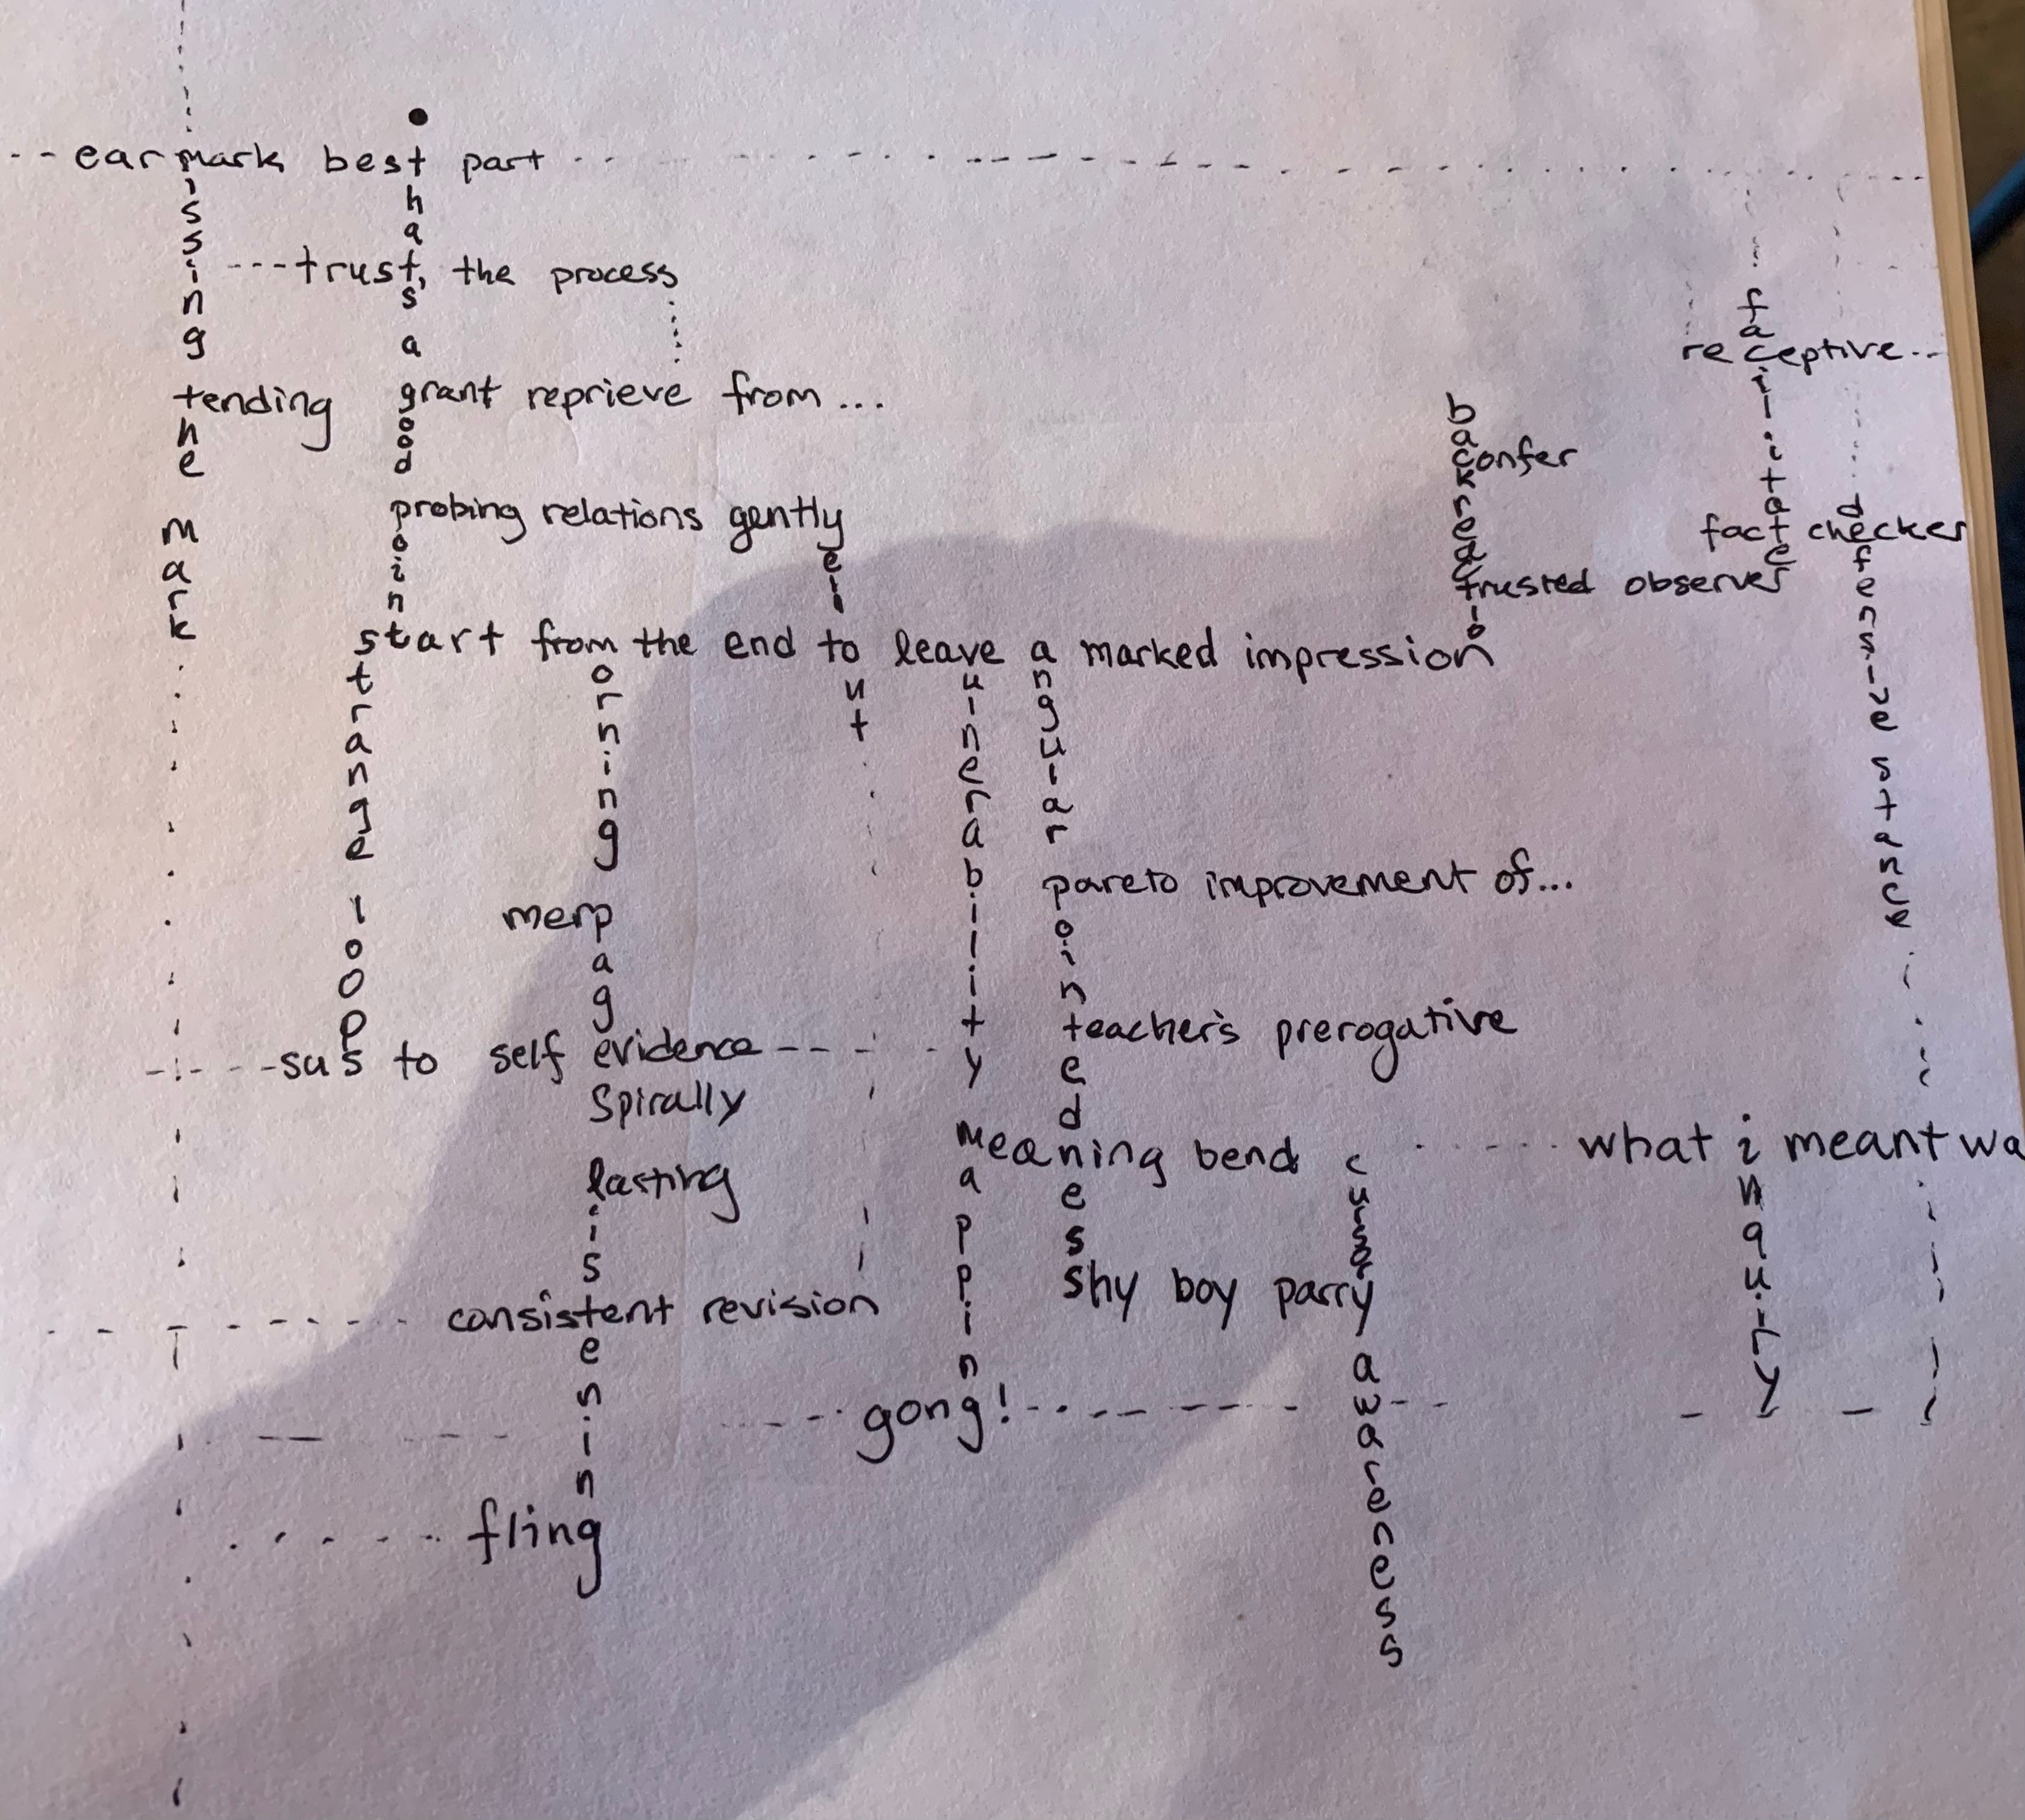 earmark best part
missing the mark
that's a good point
trust, the process
tending
grant reprieve from...
probing relations gently
yell out
start from the end to leave a marked impression
strange loops
morning pages
vulnerability mapping
angular pointedness
backreaction
confer
trusted observer
facilitater
receptive...
fact checker
defensive stance
merp
pareto improvement of...
sus to self evidence
teacher's prerogative
spirally
meaning bend
what i meant wa
lasting
listening
cursory awareness
shy boy parry
consistent revision
gong!
fling